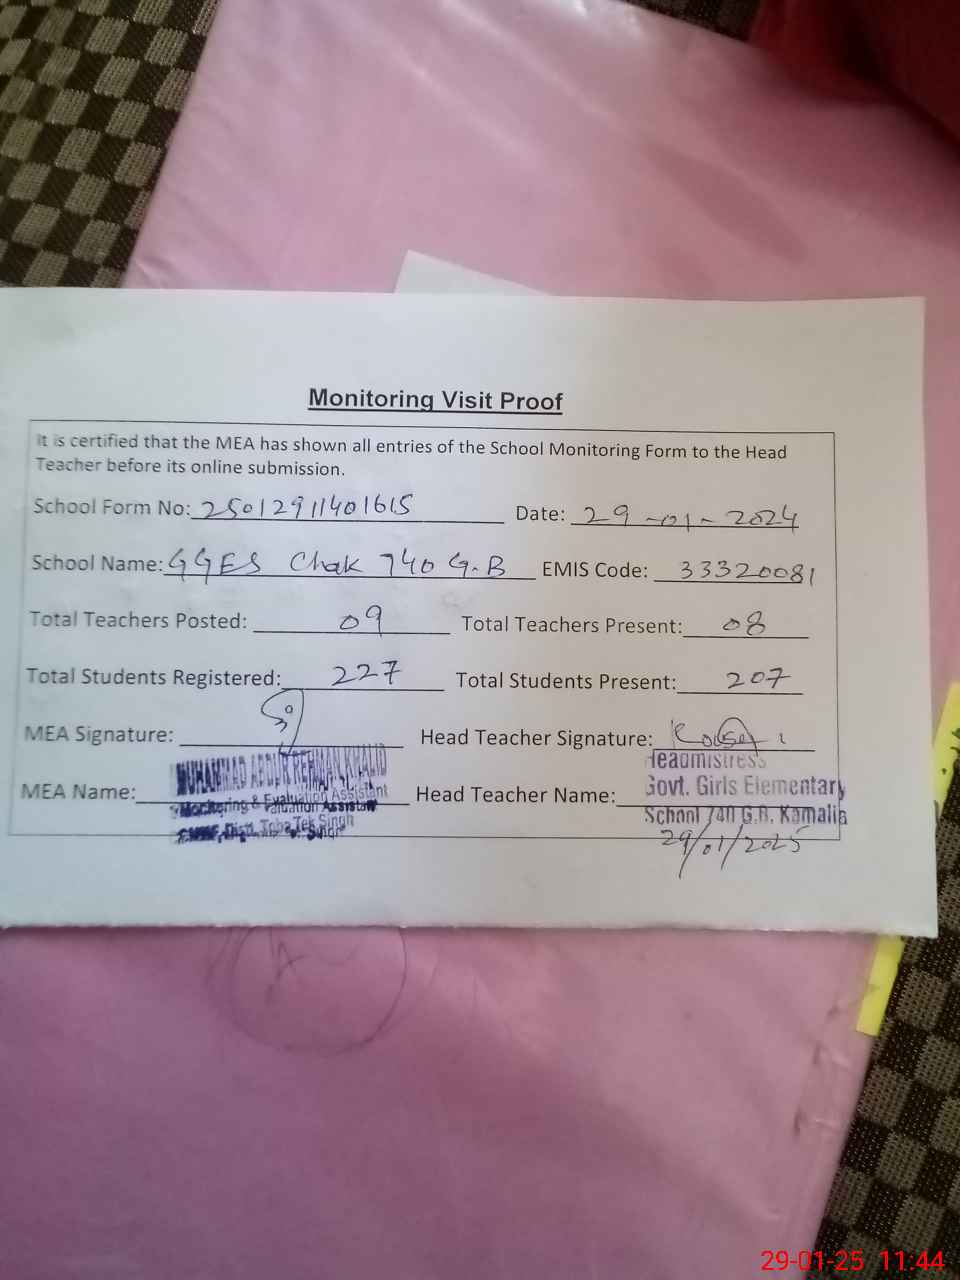 Monitoring Visit Proof
It is certified that the MEA has shown all entries of the School Monitoring Form to the Head
Teacher before its online submission.
School Form No: 25012911401615 Date: 29-01-2024
School Name: GGES Chak 740 G.B EMIS Code: 33320081
Total Teachers Posted: 09 Total Teachers Present: 08
Total Students Registered: 227 Total Students Present: 207
MEA Signature: Head Teacher Signature:
MUHAMMAD ABDUR REHMAN KHALID Headmistress
MEA Name: Monitoring & Evaluation Assistant Head Teacher Name: Govt. Girls Elementary
Distt. Toba Tek Singh School 740 G.B. Kamalia
29/01/2025
29-01-25 11:44